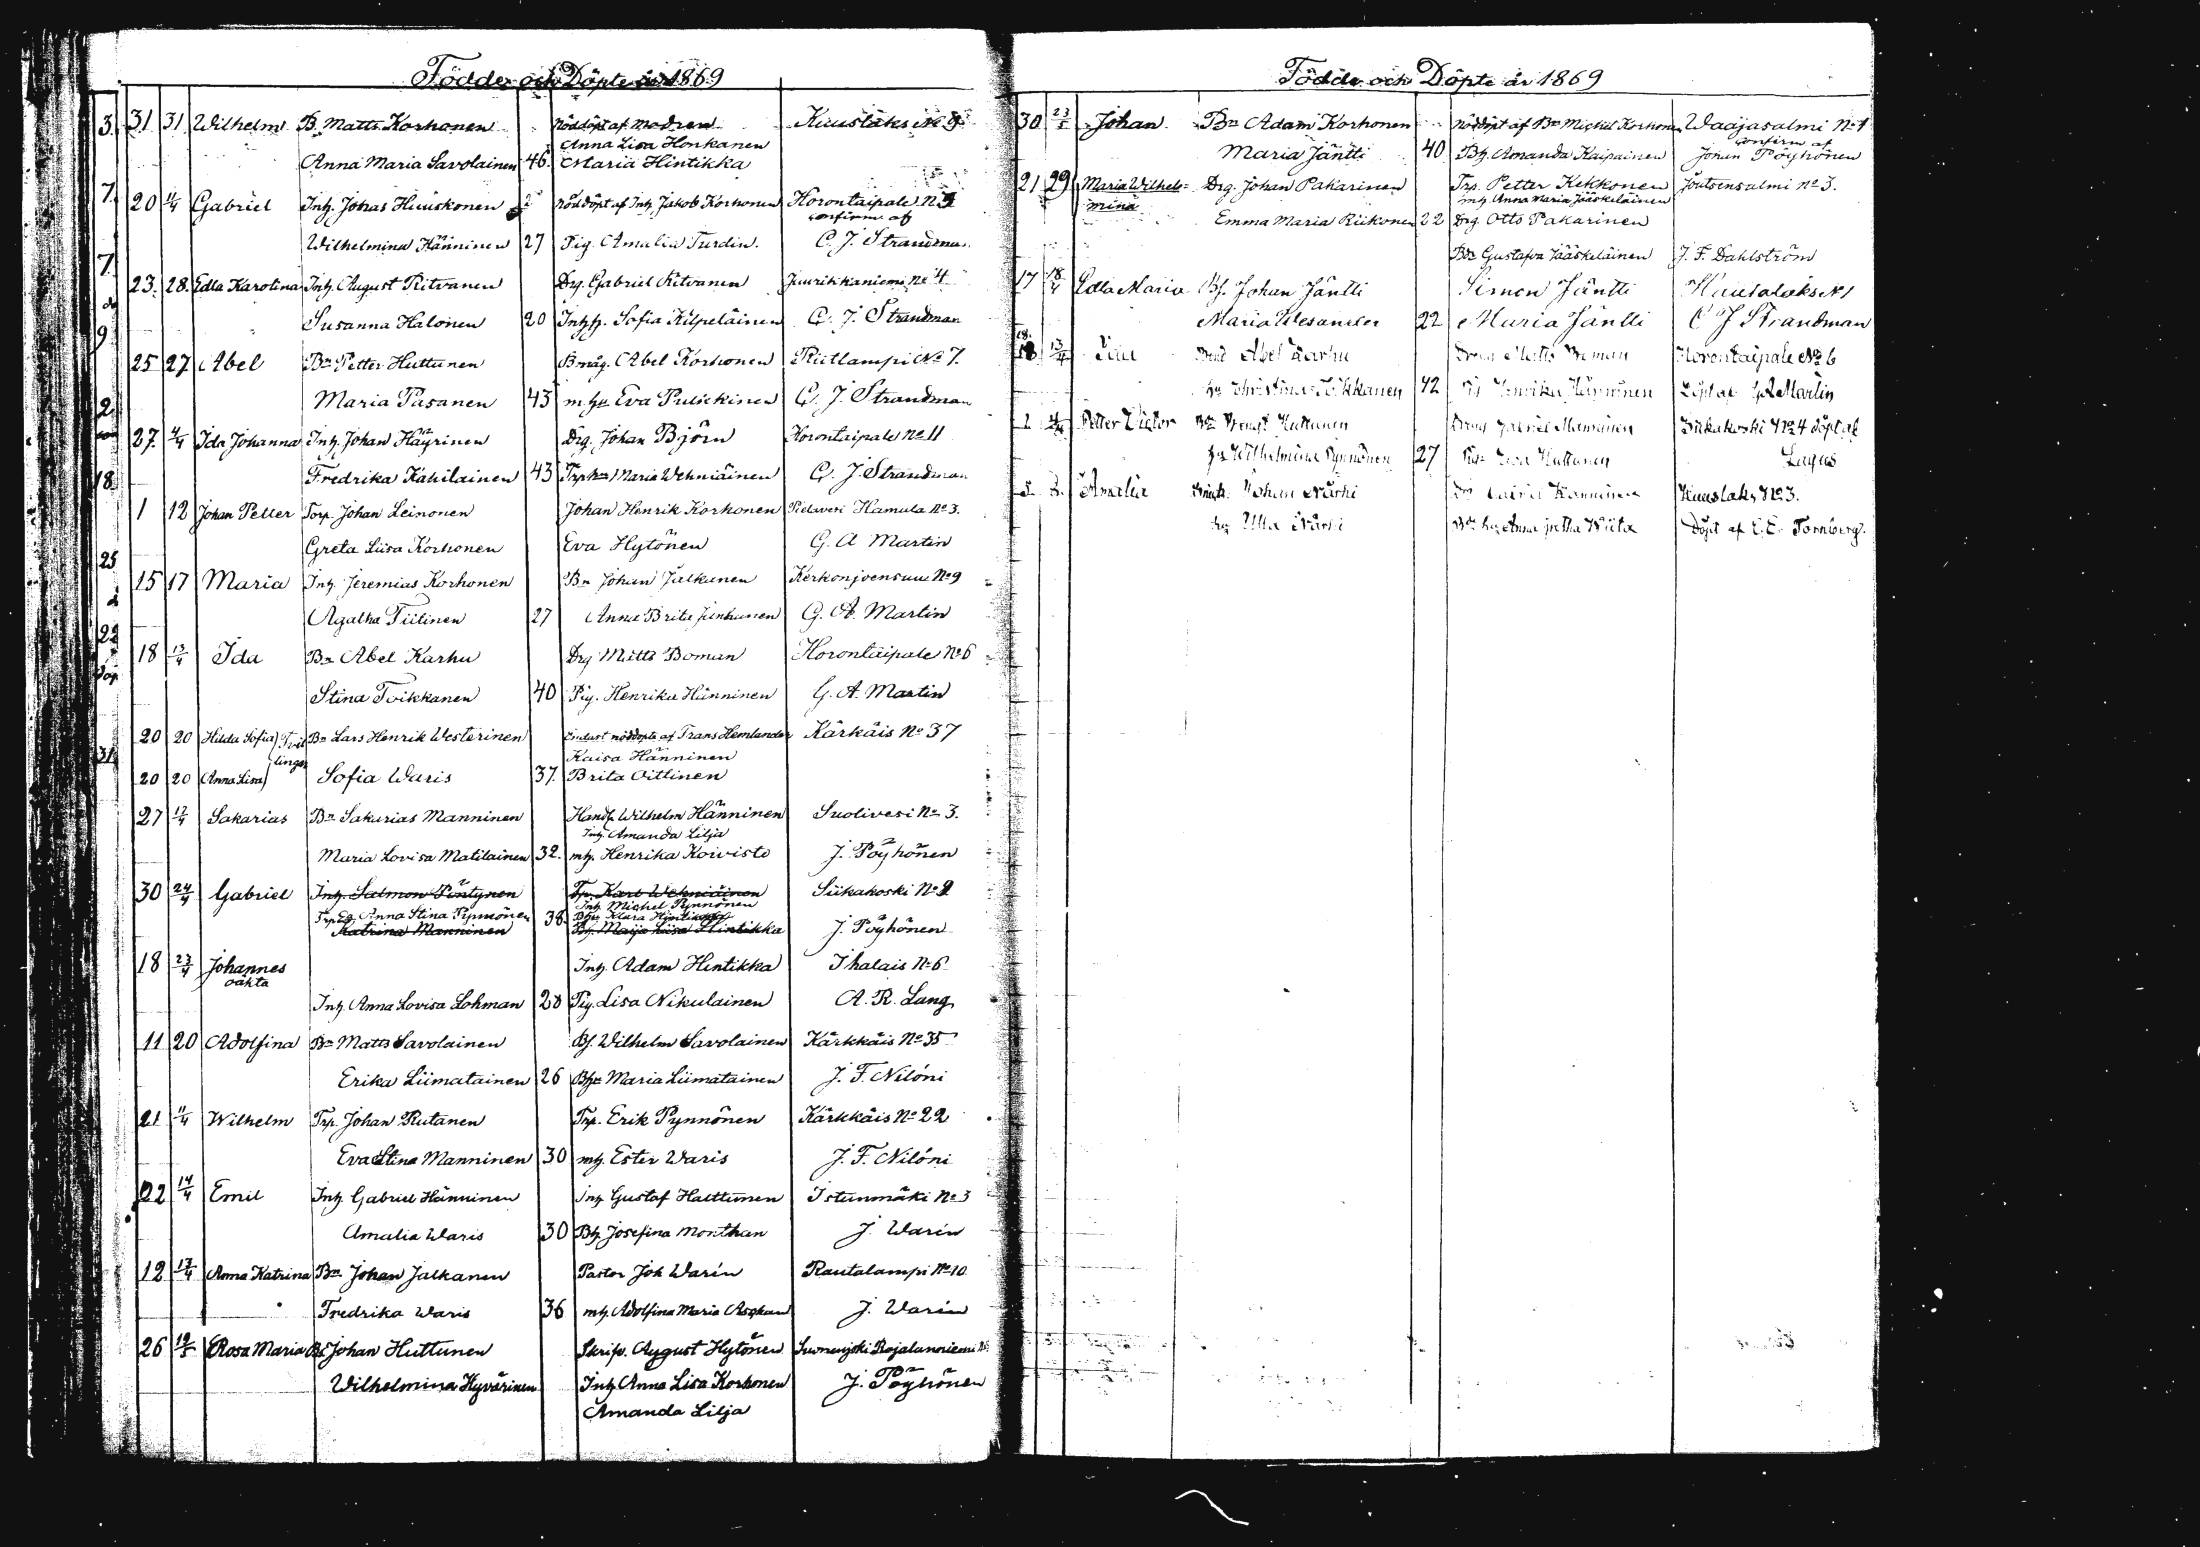 Födde och Döpte år 1869
31 31 Wilhelm B. Matts Korhonen nöddöpt af modren Kuuslaks No 9
Anna Lisa Honkanen
Anna Maria Savolainen 46. Maria Hintikka
20 4/4 Gabriel Inh. Johas Huuskonen nöddöpt af Inh. Jakob Korhonen Horontaipale No
confirm af
Wilhelmina Hänninen 27 Pig. Amalia Turdin. C. J. Strandman
23. 28. Edla Karolina Inh. August Ritvanen Drg. Gabriel Ritvanen Juurikkaniemi No 4
Susanna Halonen 20 Inh. Sofia Kilpeläinen C. J. Strandman
25 27 Abel Bn Petter Huttunen Bmåg. Abel Korhonen Riitlampi No 7.
Maria Pasanen 43 m. hu Eva C. J. Strandman
27. 4/4 Ida Johanna Inh. Johan Häyrinen Drg. Johan Björn Horontaipale No 11
Fredrika Kahilainen 43 Maria Wehniäinen C. J. Strandman
1 12 Johan Petter Torp. Johan Leinonen Johan Henrik Korhonen Pielavesi Hamula No 3.
Greta Liisa Korhonen Eva Hytönen G. A Martin
15 17 Maria Inh. Jeremias Korhonen Bn Johan Jalkanen Kerkonjoensuu No 9
Agatha Tiitinen 27 Anna Brita Junhunen G. A. Martin
18 13/4 Ida Bn Abel Karhu Drg Matts Boman Horontaipale No 6
Stina Toikkanen 40 Pig. Henrika Hänninen G. A. Martin
20 20 Hilda Sofia Tvil Bn Lars Henrik Westerinen Endast nöddöpte af Frans Hemlander Kärkäis No 37
lingar Kaisa Hänninen
20 20 Anna Lisa Sofia Waris 37. Brita Oittinen
27 12/4 Sakarias Bn Sakarias Manninen Handl. Wilhelm Hänninen Suolivesi No 3.
Inh. Amanda Lilja
Maria Lovisa Matilainen 32. mh. Henrika Koivisto J. Pöyhönen
30 24/4 Gabriel Inh. Salmon Pöntynen Trp. Karl Wehniäinen Siikakoski No 2
Inh. Michel Pynnönen
Anna Stina Pynnönen 38. Klara Hintikka
Katrina Manninen Bh. Maija Liisa Hintikka J. Pöyhönen
18 23/4 Johannes Inh. Adam Hintikka Ihalais No 6
oäkta
Inh. Anna Lovisa Lohman 28 Pig. Lisa Nikulainen A. R. Lang
11 20 Adolfina Bn Matts Savolainen Bf. Wilhelm Savolainen Kärkkäis No 35
Erika Liimatainen 26 Bhu Maria Liimatainen J. F. Nilóni
21 11/4 Wilhelm Trp. Johan Rutanen Trp. Erik Pynnönen Kärkkäis No 22
Eva Stina Manninen 30 mh. Ester Waris J. F. Nilóni
22 14/4 Emil Inh. Gabriel Hänninen Inh Gustaf Halttunen Istunmäki No 3
Amalia Waris 30 Bh. Josefina Monthan J. Warén
12 17/4 Anna Katrina Bn. Johan Jalkanen Pastor Joh Warén Rautalampi No 10
Fredrika Waris 36 mh. Adolfina Maria J. Warén
26 12/5 Rosa Maria Bf Johan Huttunen Skrifv. August Hytönen
Wilhelmina Hyvärinen Inh Anna Lisa Korhonen J. Pöyhönen
Amanda Lilja
Födde och Döpte år 1869
30 23/5 Johan Bn Adam Korhonen nöddöpt af Bn Michel Korhonen Waajasalmi No 1
confirm af
Maria Jäntti 40 Bh. Amanda Kaipainen Johan Pöyhönen
21 29 Maria Wilhel= Drg. Johan Pakarinen Trp. Petter Kekkonen Joutsensalmi No 3.
mina mh Anna Maria Jääskeläinen
Emma Maria Riikonen 22 Drg. Otto Pakarinen
Bda Gustafva Jääskeläinen J. F. Dahlström
17 18/4 Edla Maria Bf. Johan Jäntti Simon Jäntti Hautolaks No 1
Maria Wesander 22 Maria Jäntti C J Strandman
18 13/4 Abel Karhu Drng Matts Boman Horontaipale No 6
hu Christina Toikkanen 42 Henrika Hänninen Döpt af G A Martin
Petter Victor Bn Huttunen Drng Gabriel Manninen Siikakoski No 4 döpt af
hu Wilhelmina Pynnönen 27 Huttunen Lagus
Amalia Johan Närhi Kuuslaks No 3.
hu Ulla Närhi Anna Döpt af C. E. Tornberg.